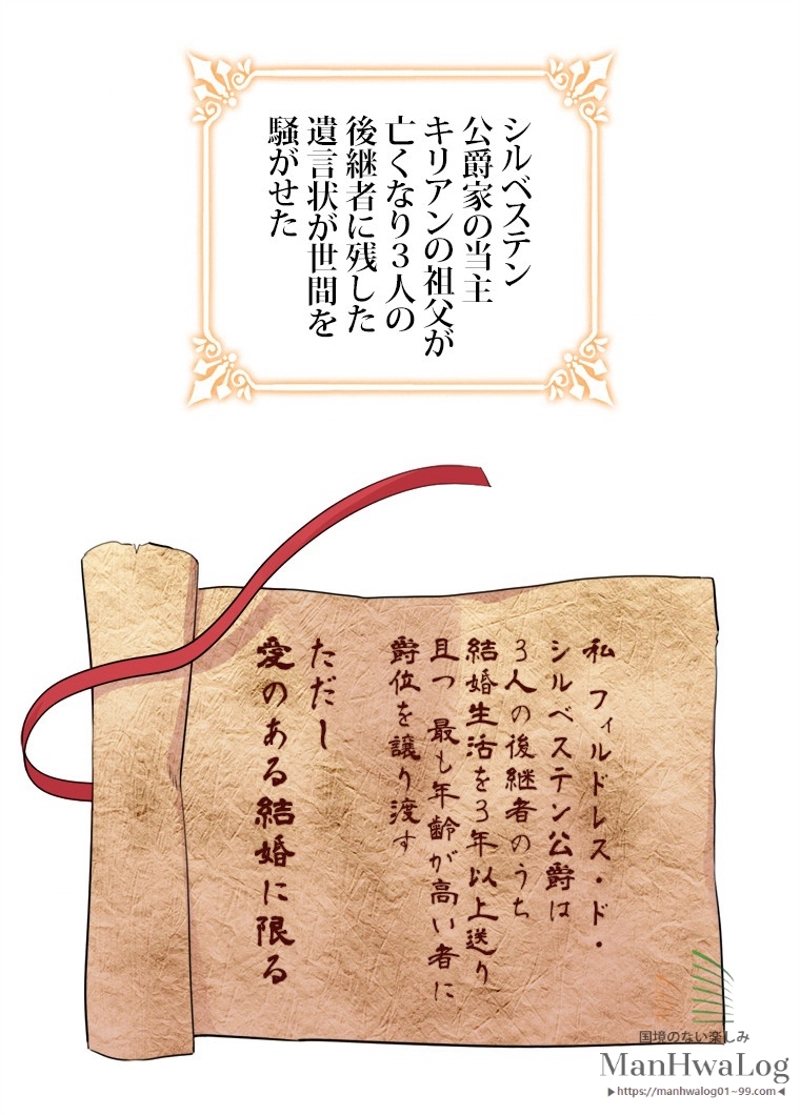 シルベステン
公爵家の当主
キリアンの祖父が
亡くなり3人の
後継者に残した
遺言状が世間を
騒がせた
私 フィルドレス・ド・
シルベステン公爵は
3人の後継者のうち
結婚生活を3年以上送り
且つ 最も年齢が高い者に
爵位を譲り渡す
ただし
愛のある結婚に限る
国境のない楽しみ
ManHwaLog
▶https://manhwalog01~99.com◀